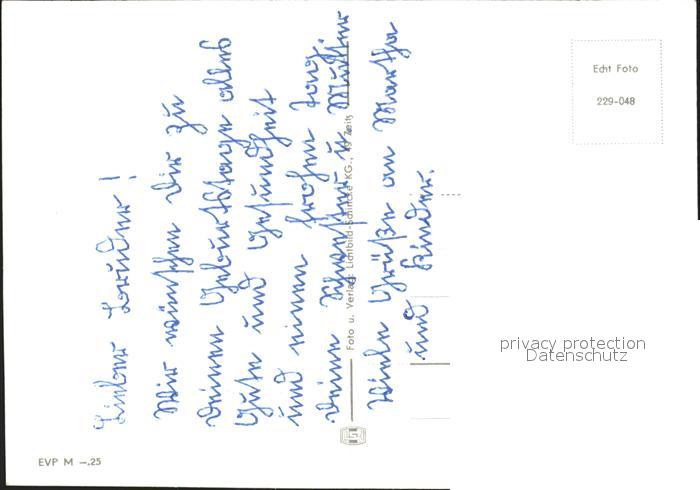 Lieber Bruder!
Wir wünschen Dir zu
Deinem Geburtstage alles
Gute und Gesundheit
und einen frohen Tag.
Deine Schwester u. Mutter
Viele Grüße an Martha
und Kinder.
Foto u. Verlag: Lichtbild-Schincke KG., 49 Zeitz
Echt Foto
229-048
EVP M –.25
privacy protection
Datenschutz